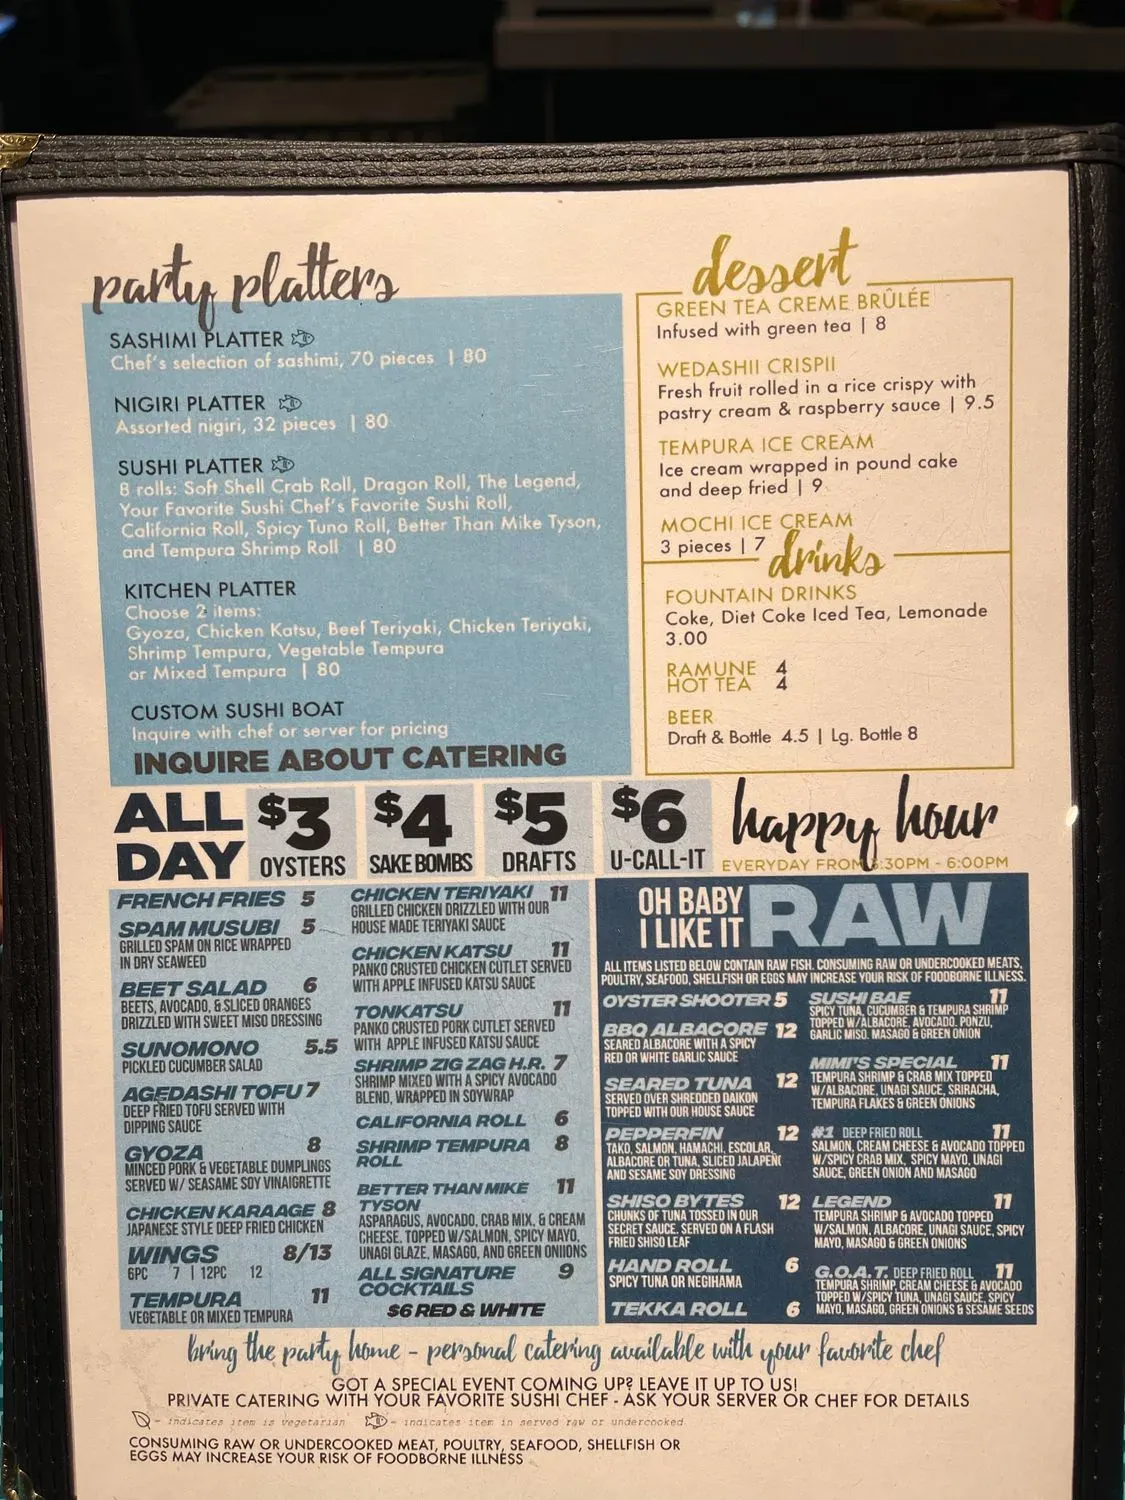 party platters
SASHIMI PLATTER
Chef's selection of sashimi, 70 pieces | 80
NIGIRI PLATTER
Assorted nigiri, 32 pieces | 80
SUSHI PLATTER
8 rolls: Soft Shell Crab Roll, Dragon Roll, The Legend,
Your Favorite Sushi Chef's Favorite Sushi Roll,
California Roll, Spicy Tuna Roll, Better Than Mike Tyson,
and Tempura Shrimp Roll | 80
KITCHEN PLATTER
Choose 2 items:
Gyoza, Chicken Katsu, Beef Teriyaki, Chicken Teriyaki,
Shrimp Tempura, Vegetable Tempura
or Mixed Tempura | 80
CUSTOM SUSHI BOAT
Inquire with chef or server for pricing
INQUIRE ABOUT CATERING
dessert
GREEN TEA CREME BRÛLÉE
Infused with green tea | 8
WEDASHII CRISPII
Fresh fruit rolled in a rice crispy with
pastry cream & raspberry sauce | 9.5
TEMPURA ICE CREAM
Ice cream wrapped in pound cake
and deep fried | 9
MOCHI ICE CREAM
3 pieces | 7
drinks
FOUNTAIN DRINKS
Coke, Diet Coke Iced Tea, Lemonade
3.00
RAMUNE 4
HOT TEA 4
BEER
Draft & Bottle 4.5 | Lg. Bottle 8
ALL DAY
$3 OYSTERS
$4 SAKE BOMBS
$5 DRAFTS
$6 U-CALL-IT
happy hour
EVERYDAY FROM 3:30PM - 6:00PM
FRENCH FRIES 5
SPAM MUSUBI 5
GRILLED SPAM ON RICE WRAPPED
IN DRY SEAWEED
BEET SALAD 6
BEETS, AVOCADO, & SLICED ORANGES
DRIZZLED WITH SWEET MISO DRESSING
SUNOMONO 5.5
PICKLED CUCUMBER SALAD
AGEDASHI TOFU 7
DEEP FRIED TOFU SERVED WITH
DIPPING SAUCE
GYOZA 8
MINCED PORK & VEGETABLE DUMPLINGS
SERVED W/ SEASAME SOY VINAIGRETTE
CHICKEN KARAAGE 8
JAPANESE STYLE DEEP FRIED CHICKEN
WINGS 8/13
6PC 7 | 12PC 12
TEMPURA 11
VEGETABLE OR MIXED TEMPURA
CHICKEN TERIYAKI 11
GRILLED CHICKEN DRIZZLED WITH OUR
HOUSE MADE TERIYAKI SAUCE
CHICKEN KATSU 11
PANKO CRUSTED CHICKEN CUTLET SERVED
WITH APPLE INFUSED KATSU SAUCE
TONKATSU 11
PANKO CRUSTED PORK CUTLET SERVED
WITH APPLE INFUSED KATSU SAUCE
SHRIMP ZIG ZAG H.R. 7
SHRIMP MIXED WITH A SPICY AVOCADO
BLEND, WRAPPED IN SOYWRAP
CALIFORNIA ROLL 6
SHRIMP TEMPURA 8
ROLL
BETTER THAN MIKE 11
TYSON
ASPARAGUS, AVOCADO, CRAB MIX, & CREAM
CHEESE. TOPPED W/SALMON, SPICY MAYO,
UNAGI GLAZE, MASAGO, AND GREEN ONIIONS
ALL SIGNATURE 9
COCKTAILS
$6 RED & WHITE
OH BABY
I LIKE IT RAW
ALL ITEMS LISTED BELOW CONTAIN RAW FISH. CONSUMING RAW OR UNDERCOOKED MEATS,
POULTRY, SEAFOOD, SHELLFISH OR EGGS MAY INCREASE YOUR RISK OF FOODBORNE ILLNESS.
OYSTER SHOOTER 5
BBQ ALBACORE 12
SEARED ALBACORE WITH A SPICY
RED OR WHITE GARLIC SAUCE
SEARED TUNA 12
SERVED OVER SHREDDED DAIKON
TOPPED WITH OUR HOUSE SAUCE
PEPPERFIN 12
TAKO, SALMON, HAMACHI, ESCOLAR,
ALBACORE OR TUNA, SLICED JALAPEÑO
AND SESAME SOY DRESSING
SHISO BYTES 12
CHUNKS OF TUNA TOSSED IN OUR
SECRET SAUCE. SERVED ON A FLASH
FRIED SHISO LEAF
HAND ROLL 6
SPICY TUNA OR NEGIHAMA
TEKKA ROLL 6
SUSHI BAE 11
SPICY TUNA, CUCUMBER & TEMPURA SHRIMP
TOPPED W/ALBACORE, AVOCADO, PONZU,
GARLIC MISO, MASAGO & GREEN ONION
MIMI'S SPECIAL 11
TEMPURA SHRIMP & CRAB MIX TOPPED
W/ALBACORE, UNAGI SAUCE, SRIRACHA,
TEMPURA FLAKES & GREEN ONIONS
#1 DEEP FRIED ROLL 11
SALMON, CREAM CHEESE & AVOCADO TOPPED
W/SPICY CRAB MIX, SPICY MAYO, UNAGI
SAUCE, GREEN ONION AND MASAGO
LEGEND 11
TEMPURA SHRIMP & AVOCADO TOPPED
W/SALMON, ALBACORE, UNAGI SAUCE, SPICY
MAYO, MASAGO & GREEN ONIONS
G.O.A.T. DEEP FRIED ROLL 11
TEMPURA SHRIMP, CREAM CHEESE & AVOCADO
TOPPED W/SPICY TUNA, UNAGI SAUCE, SPICY
MAYO, MASAGO, GREEN ONIONS & SESAME SEEDS
bring the party home - personal catering available with your favorite chef
GOT A SPECIAL EVENT COMING UP? LEAVE IT UP TO US!
PRIVATE CATERING WITH YOUR FAVORITE SUSHI CHEF - ASK YOUR SERVER OR CHEF FOR DETAILS
- indicates item is vegetarian - indicates item in served raw or undercooked.
CONSUMING RAW OR UNDERCOOKED MEAT, POULTRY, SEAFOOD, SHELLFISH OR
EGGS MAY INCREASE YOUR RISK OF FOODBORNE ILLNESS